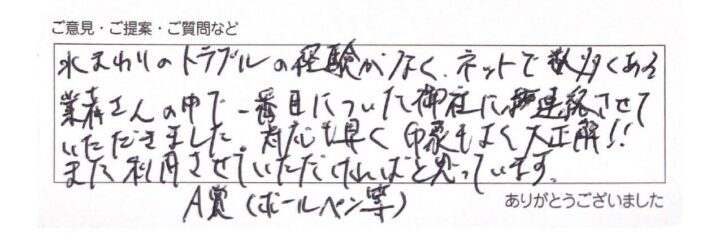 ご意見・ご提案・ご質問など
水まわりのトラブルの経験がなく、ネットで数多くある
業者さんの中で一番目についた御社に連絡させて
いただきました。対応も早く印象もよく大正解!!
また利用させていただければと思っています。
A賞(ボールペン等)
ありがとうございました